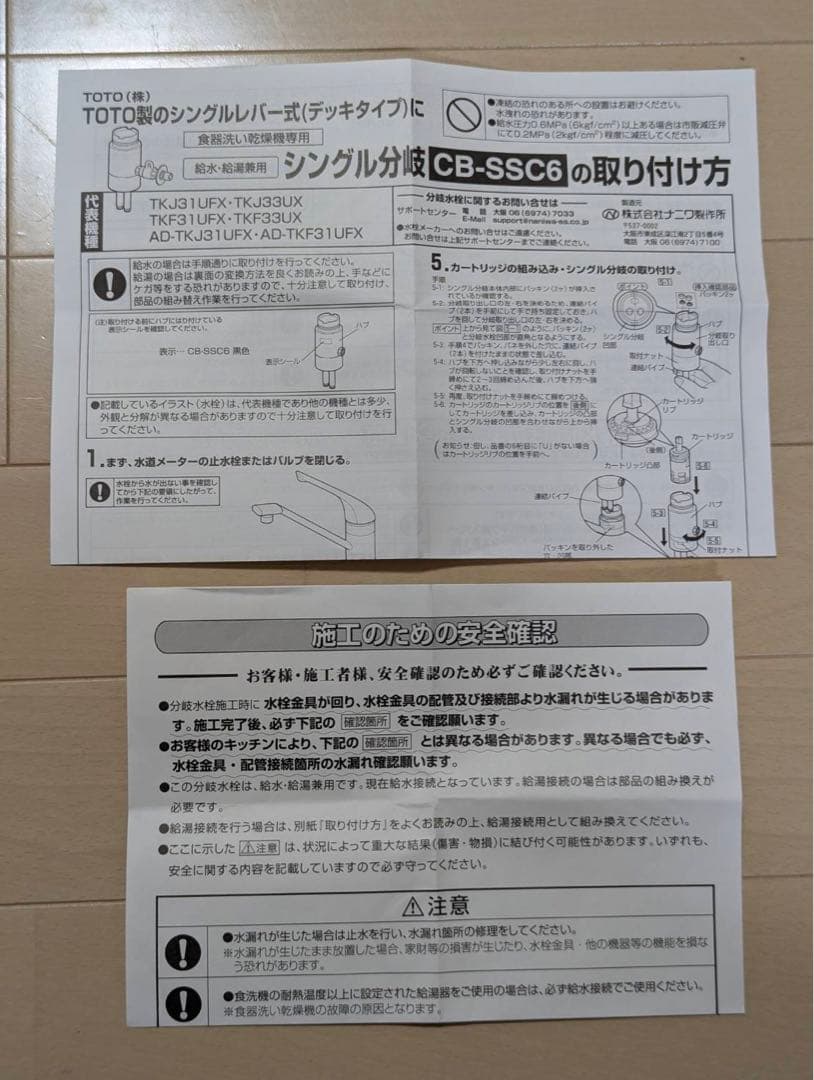 TOTO(株)
TOTO製のシングルレバー式(デッキタイプ)に
食器洗い乾燥機専用
給水・給湯兼用 シングル分岐 CB-SSC6 の取り付け方
●凍結の恐れのある所への設置はお避けください。
水洩れの恐れがあります。
●給水圧力0.6MPa(6kgf/cm²)以上ある場合は市販減圧弁
にて0.2MPa(2kgf/cm²)程度に減圧してください。
代表機種
TKJ31UFX・TKJ33UX
TKF31UFX・TKF33UX
AD-TKJ31UFX・AD-TKF31UFX
分岐水栓に関するお問い合せは
サポートセンター 電 話 大阪 06(6974)7033
E-Mail support@naniwa-ss.co.jp
●水栓メーカーへのお問い合せはご遠慮ください。
お問い合せは上記サポートセンターまでご連絡ください。
製造元
株式会社ナニワ製作所
〒537-0002
大阪市東成区深江南2丁目5番4号
電話 大阪 06(6974)7100
給水の場合は手順通りに取り付けを行ってください。
給湯の場合は裏面の変換方法を良くお読みの上、手などに
ケガ等をする恐れがありますので、十分注意して取り付け、
部品の組み替え作業を行ってください。
(注)取り付ける前にハブにはり付けている
表示シールを確認してください。
ハブ
表示シール
表示… CB-SSC6 黒色
●記載しているイラスト(水栓)は、代表機種であり他の機種とは多少、
外観と分解が異なる場合がありますので十分注意して取り付けを行
ってください。
1.まず、水道メーターの止水栓またはバルブを閉じる。
水栓から水が出ない事を確認し
てから下記の要領にしたがって、
作業を行ってください。
5.カートリッジの組み込み・シングル分岐の取り付け。
手順
5-1: シングル分岐本体内部にパッキン(2ヶ)が挿入さ
れているか確認する。
5-2: 分岐取り出し口の左・右を決めるため、連結パイ
プ(2本)を手配にして手で持ち固定しておき、ハ
ブを回して分岐取り出し口の左・右を決める。
ポイント 上から見て図5-1のように、パッキン(2ヶ)
と分岐水栓凹部が直角となるようにする。
5-3: 手順4でパッキン、バネを外した穴に、連結パイプ
(2本)を付けたままの状態で差し込む。
5-4: ハブを下方へ押し込みながら少し左右に回し、ハ
ブが回転しないことを確認し、取り付けナットを手
締めにて2~3回締め込んだ後、ハブを下方へ強
く押さえ込む。
5-5: 再度、取り付けナットを手締めにて締めつける。
5-6: カートリッジのカートリッジリブの位置を 後側 に
してカートリッジを差し込み、カートリッジの凸部
とシングル分岐の凹部を合わせながら上から挿
入する。
お知らせ:但し、品番の5桁目に「U」がない場合
はカートリッジリブの位置を手前へ。
ポイント
5-1
挿入確認部品
パッキン2ヶ
シングル分岐
凹部
5-2
ハブ
分岐取り
出し口
取付ナット
連結パイプ
カートリッジ
リブ
(後側)
カートリッジ
カートリッジ凸部
5-6
連結パイプ
5-3
ハブ
5-4
5-5
取付ナット
パッキンを取り外した
穴・凹部
施工のための安全確認
お客様・施工者様、安全確認のため必ずご確認ください。
●分岐水栓施工時に 水栓金具が回り、水栓金具の配管及び接続部より水漏れが生じる場合がありま
す。施工完了後、必ず下記の 確認箇所 をご確認願います。
●お客様のキッチンにより、下記の 確認箇所 とは異なる場合があります。異なる場合でも必ず、
水栓金具・配管接続箇所の水漏れ確認願います。
●この分岐水栓は、給水・給湯兼用です。現在給水接続となっています。給湯接続の場合は部品の組み換えが
必要です。
●給湯接続を行う場合は、別紙『取り付け方』をよくお読みの上、給湯接続用として組み換えてください。
●ここに示した ⚠注意 は、状況によって重大な結果(傷害・物損)に結び付く可能性があります。いずれも、
安全に関する内容を記載していますので必ず守ってください。
⚠注意
●水漏れが生じた場合は止水を行い、水漏れ箇所の修理をしてください。
※水漏れが生じたまま放置した場合、家財等の損害が生じたり、水栓金具・他の機器等の機能を損な
う恐れがあります。
●食洗機の耐熱温度以上に設定された給湯器をご使用の場合は、必ず給水接続でご使用ください。
※食器洗い乾燥機の故障の原因となります。